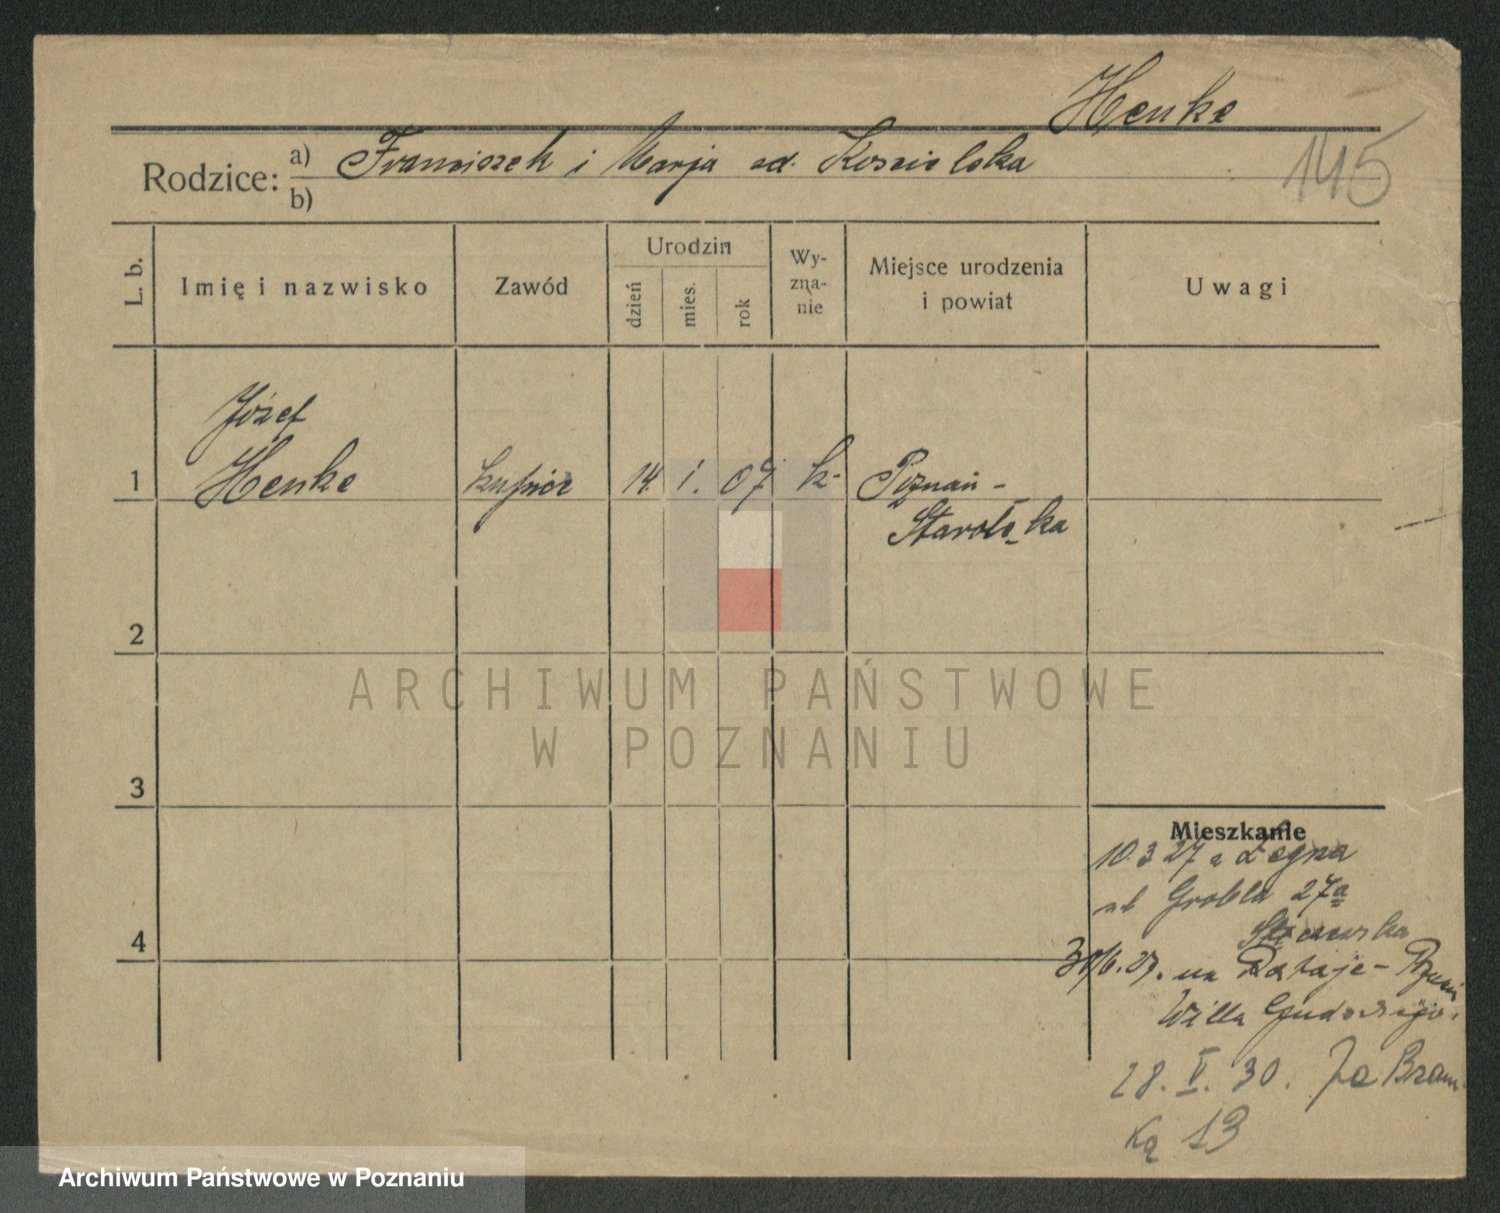 Henke
145
Rodzice: a) Franciszek i Marja zd. Koscielska
b)
L. b.
Imię i nazwisko
Zawód
Urodzin
dzień
mies.
rok
Wy-
zna-
nie
Miejsce urodzenia
i powiat
Uwagi
Józef
1 Henke kupiec 14. 1. 07 k. Poznań -
Starołęka
2
ARCHIWUM PAŃSTWOWE
W POZNANIU
3
Mieszkanie
10.3 27 z Legna
ul Grobla 27a
4
6.27. na Rataje - Poznań
Willa
28. V. 30. Za Bram-
ką 13
Archiwum Państwowe w Poznaniu